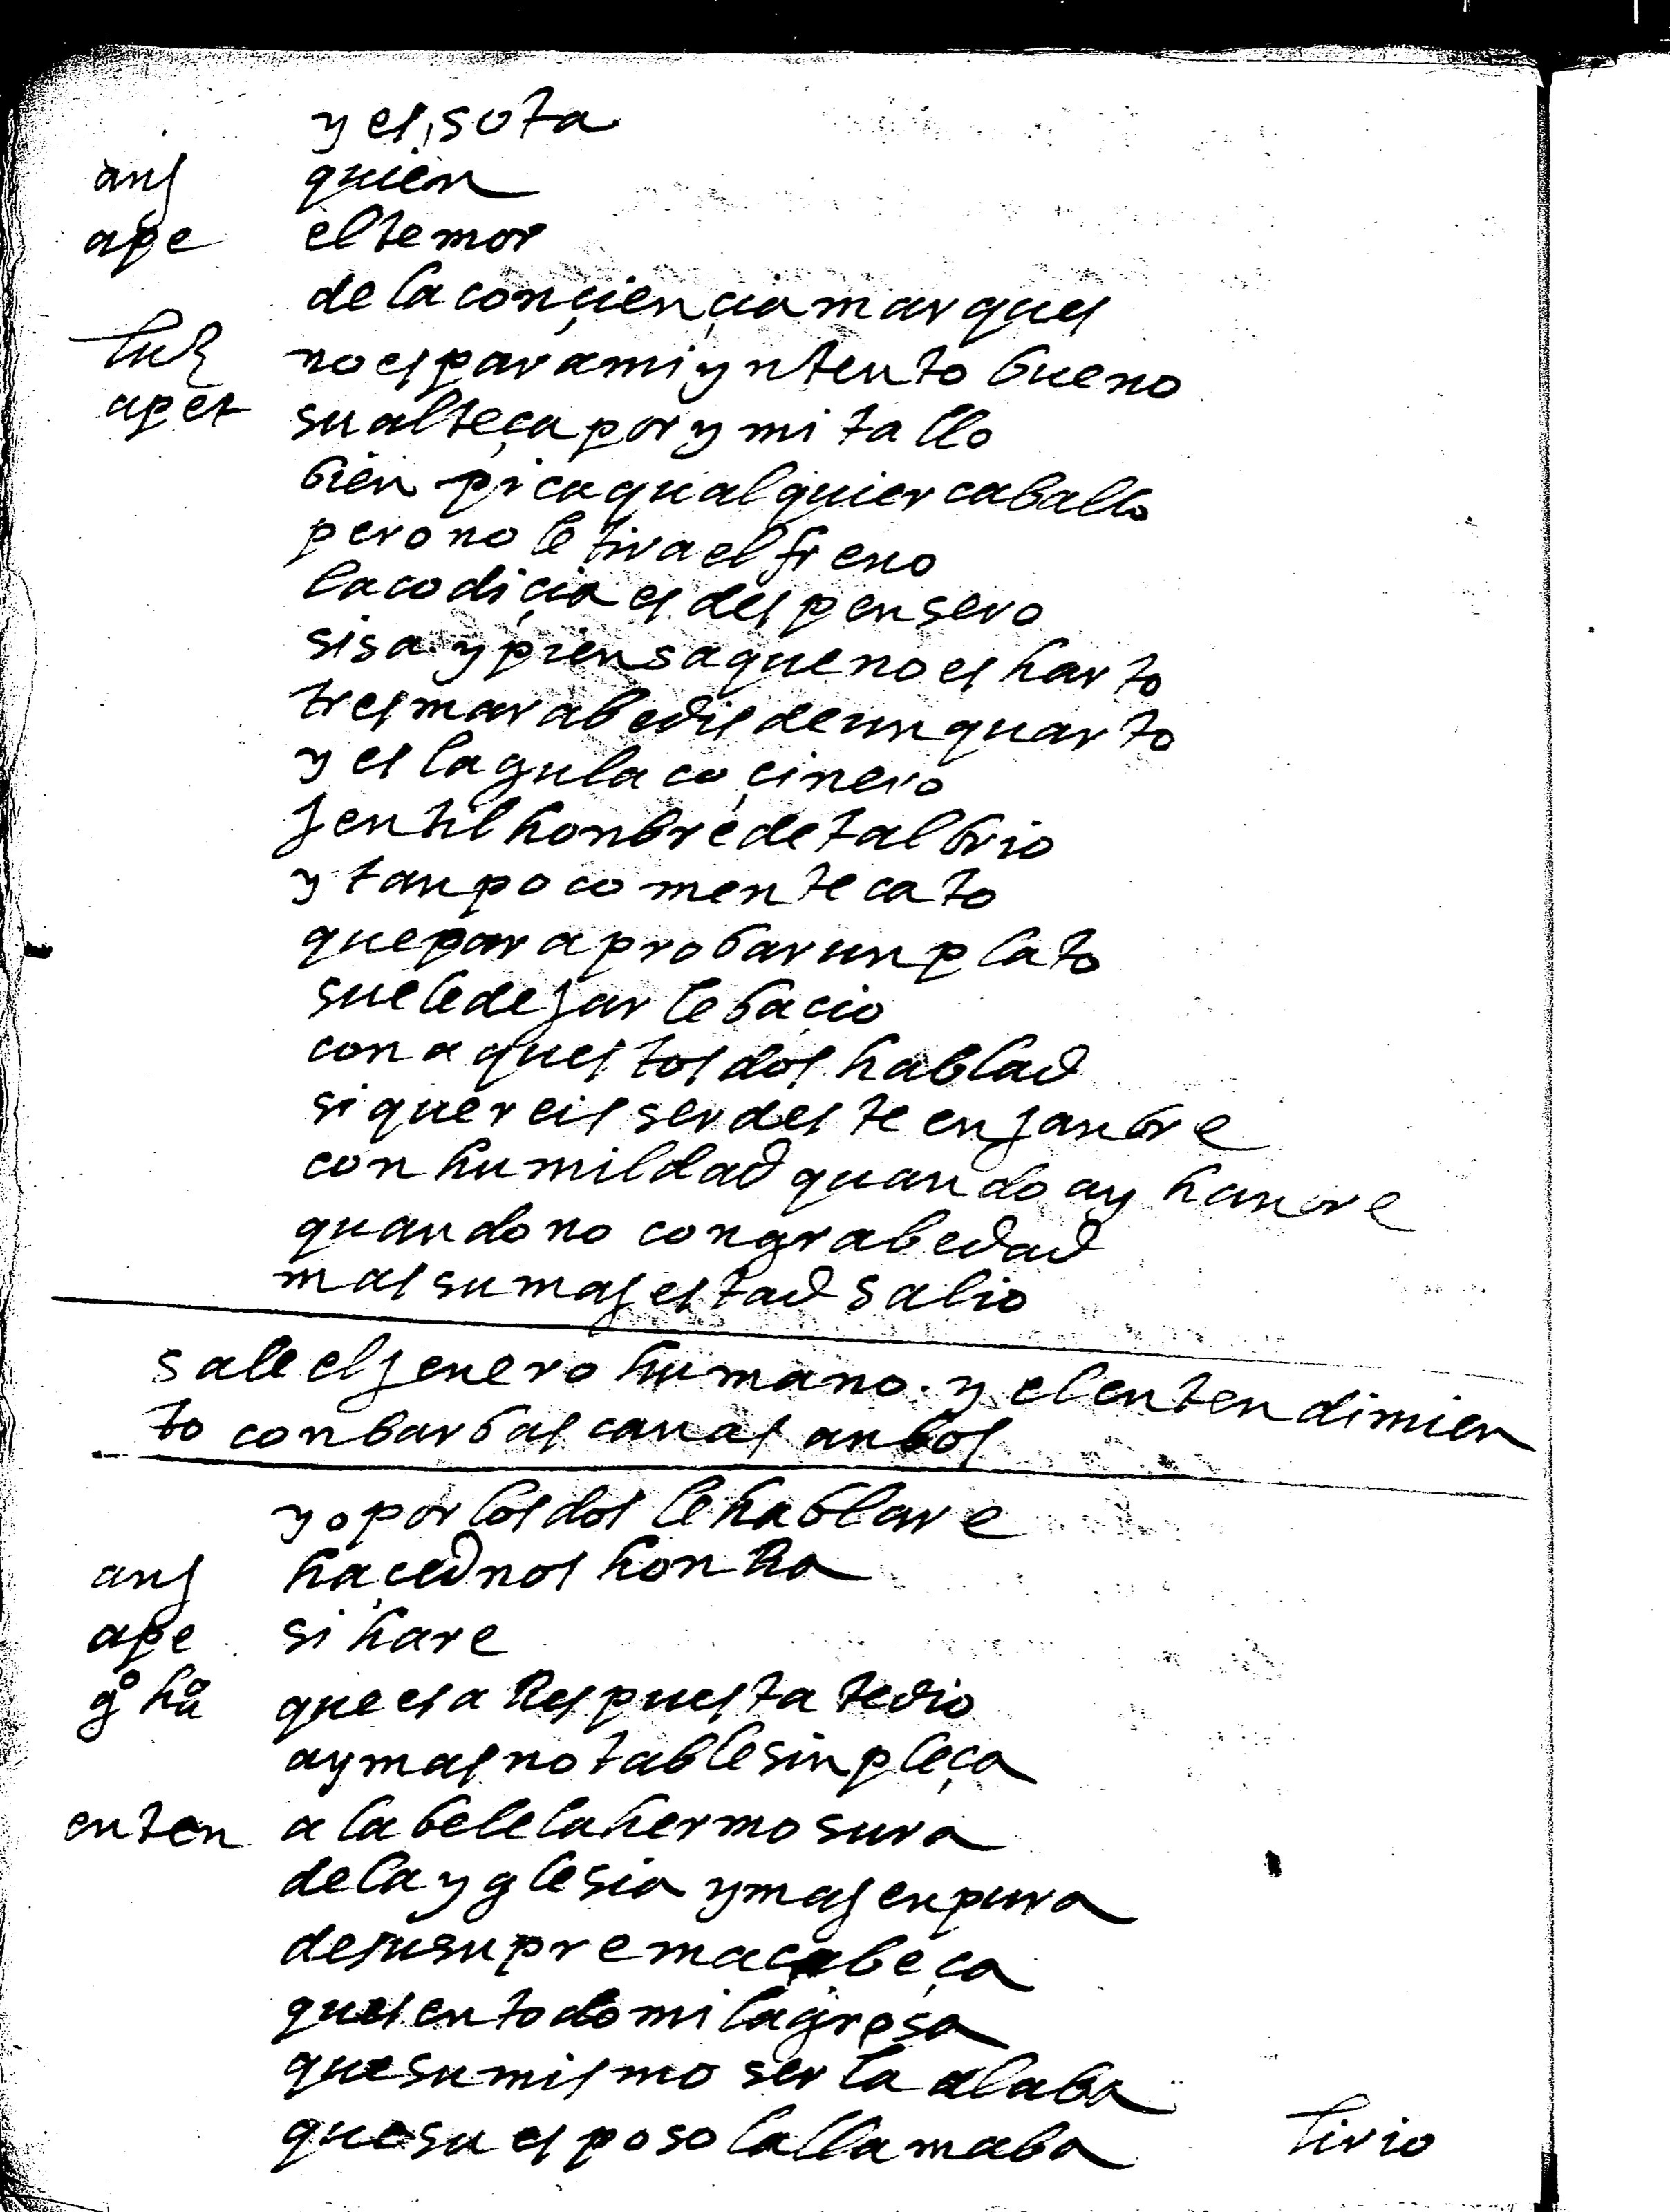 y es sota
anj quien
ape el temor
de la conçiençia marques
luz no es para mi yntento bueno
apet su alteça por y mi tallo
bien pica qualquier caballo
pero no le tira el freno
la codiçia es despensero
sisa y piensa que no es harto
tres marabedis de un quarto
y es la gula coçinero
jentil honbre de tal brio
y tan poco mentecato
que para probar un plato
suele dejarle baçio
con aquestos dos hablad
si quereis ser deste enjanbre
con humildad quando ay hanbre
quando no con grabedad
mas su majestad salio
sale el jenero humano. y el entendimien
to con barbas canas anbos
yo por los dos le hablare
anj haçednos honRa
ape si hare
gº huº que esa Respuesta te dio
ay mas notable sinpleça
enten alabele la hermosura
de la yglesia y majen pura
de su suprema cabeça
ques en todo milagrosa
que su mismo ser la alaba
que su esposo la llamaba
lirio